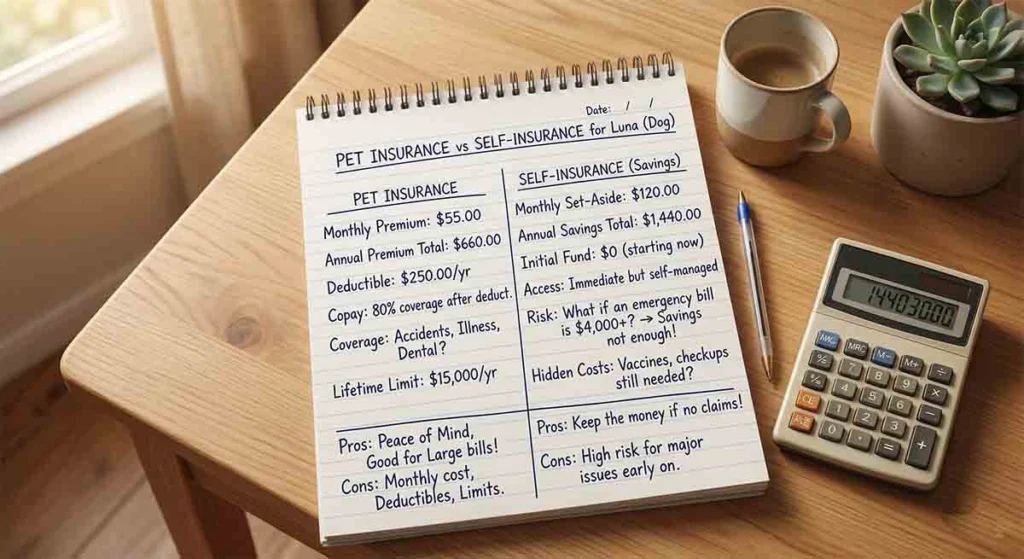 Date: / /
PET INSURANCE vs SELF-INSURANCE for Luna (Dog)
PET INSURANCE
Monthly Premium: $55.00
Annual Premium Total: $660.00
Deductible: $250.00/yr
Copay: 80% coverage after deduct.
Coverage: Accidents, Illness,
Dental?
Lifetime Limit: $15,000/yr
Pros: Peace of Mind,
Good for Large bills!
Cons: Monthly cost,
Deductibles, Limits.
SELF-INSURANCE (Savings)
Monthly Set-Aside: $120.00
Annual Savings Total: $1,440.00
Initial Fund: $0 (starting now)
Access: Immediate but self-managed
Risk: What if an emergency bill
is $4,000+? → Savings
not enough!
Hidden Costs: Vaccines, checkups
still needed?
Pros: Keep the money if no claims!
Cons: High risk for major
issues early on.
MRC M- M+ ÷
7 8 9 ×
4 5 6 −
CE 1 2 3
0 · = +